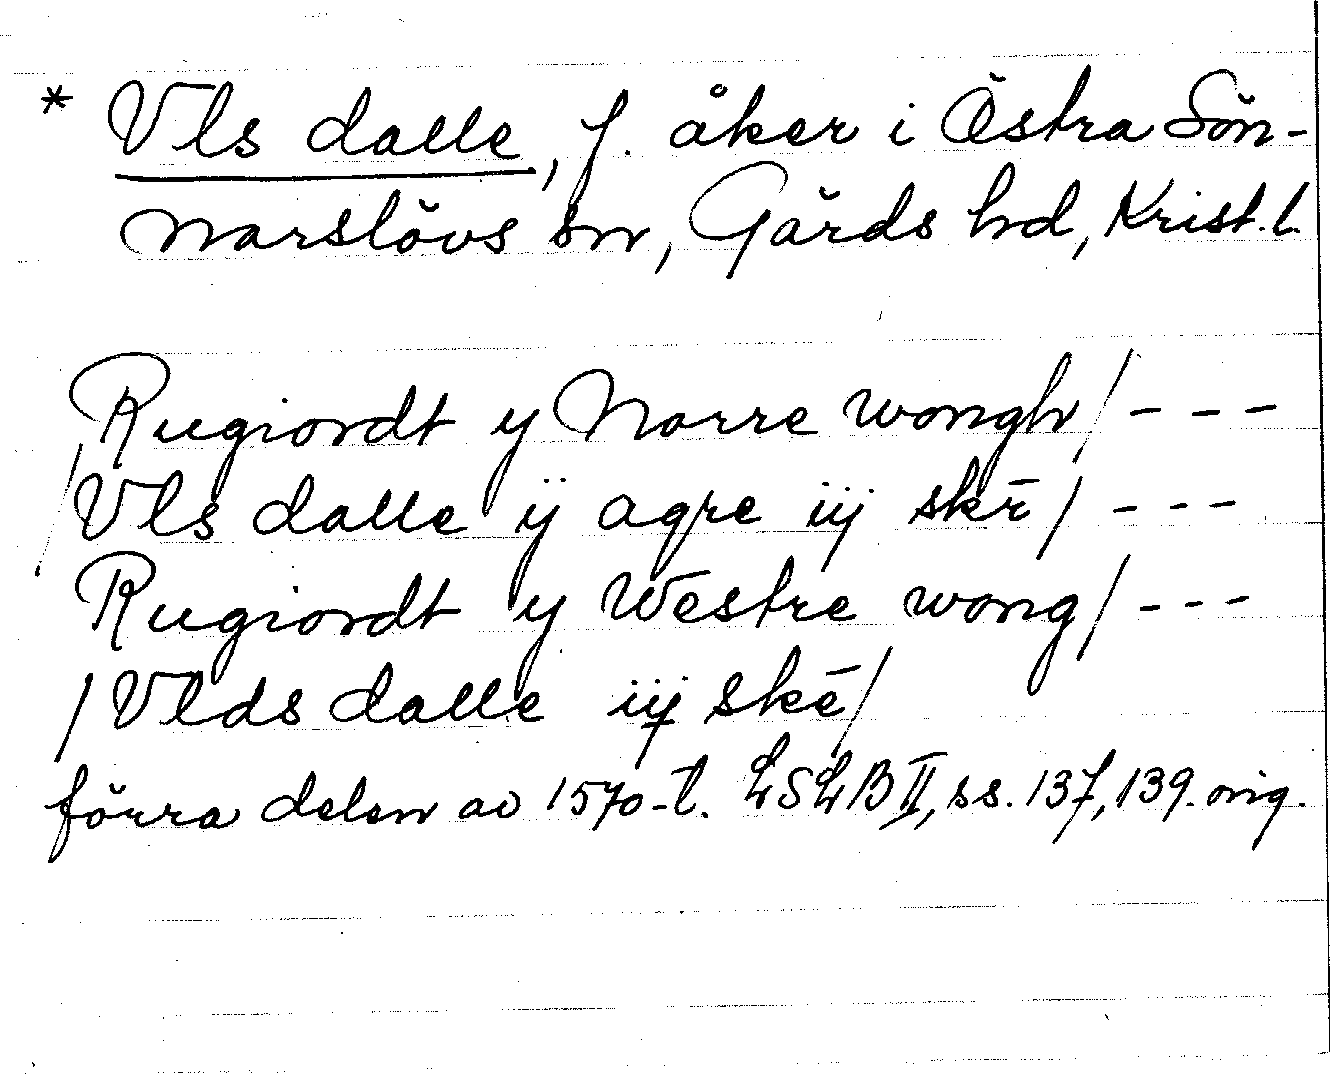 * Vls dalle, f. åker i Östra Sön-
narslövs sn, Gärds hd, Krist. l.
Rugiordt y Norre wongh/ - - -
/Vls dalle ij agre iij skē/ - - -
Rugiordt y Westre wong/ - - -
/Vlds dalle iij skē/
förra delen av 1570-t. LSLB II, ss. 137, 139. orig.